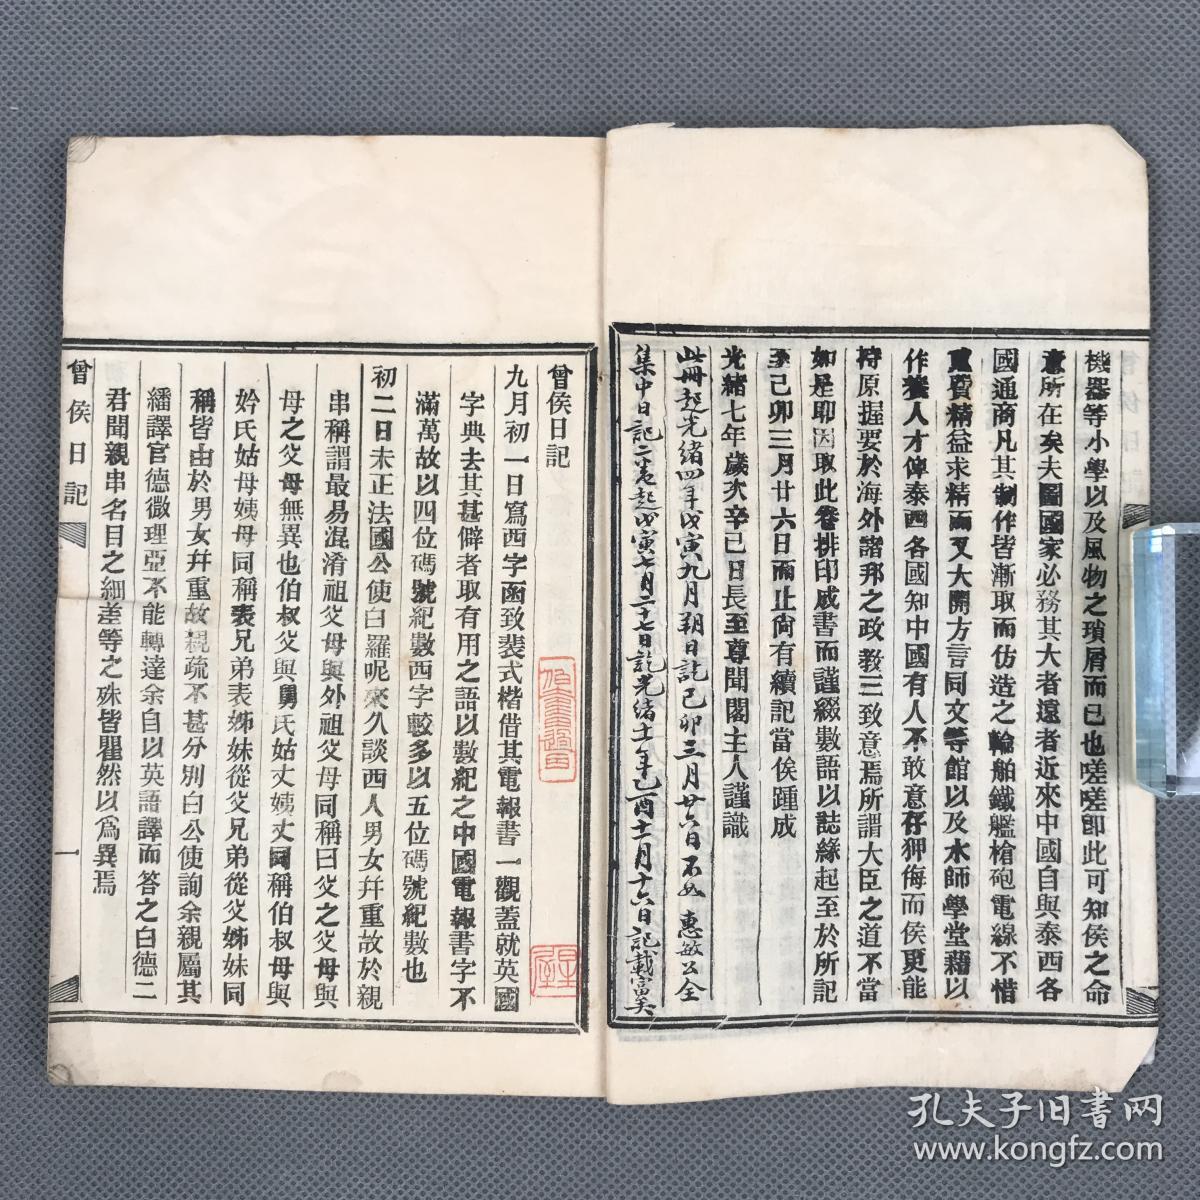 機器等小學以及風物之瑣屑而已也嗟嗟卽此可知侯之命
意所在矣夫圖國家必務其大者遠者近來中國自與泰西各
國通商凡其制作皆漸取而仿造之輪舶鐵艦槍砲電線不惜
重貲精益求精而又大開方言同文等館以及水師學堂藉以
作養人才俾泰西各國知中國有人不敢意存狎侮而侯更能
持原握要於海外諸邦之政教三致意焉所謂大臣之道不當
如是耶因取此卷排印成書而謹綴數語以誌緣起至於所記
至己卯三月廿六日而止尙有續記當俟踵成
光緒七年歲次辛己日長至尊聞閣主人謹識
此冊起光緒四年戊寅九月朔日訖己卯三月廿六日不如 惠敏公全
集中日記二卷起戊寅七月二十七日訖光緒十一年乙酉十一月十六日記載富矣
曾侯日記
九月初一日寫西字函致裴式楷借其電報書一觀蓋就英國
字典去其甚僻者取有用之語以數紀之中國電報書字不
滿萬故以四位碼號紀數西字較多以五位碼號紀數也
初二日未正法國公使白羅呢來久談西人男女幷重故於親
串稱謂最易混淆祖父母與外祖父母同稱曰父之父母與
母之父母無異也伯叔父與舅氏姑丈姨丈同稱伯叔母與
妗氏姑母姨母同稱表兄弟表姊妹從父兄弟從父姊妹同
稱皆由於男女幷重故親疏不甚分別白公使詢余親屬其
繙譯官德微理亞不能轉達余自以英語譯而答之白德二
君聞親串名目之細差等之殊皆瞿然以爲異焉
曾侯日記
一
孔夫子旧書网
www.kongfz.com